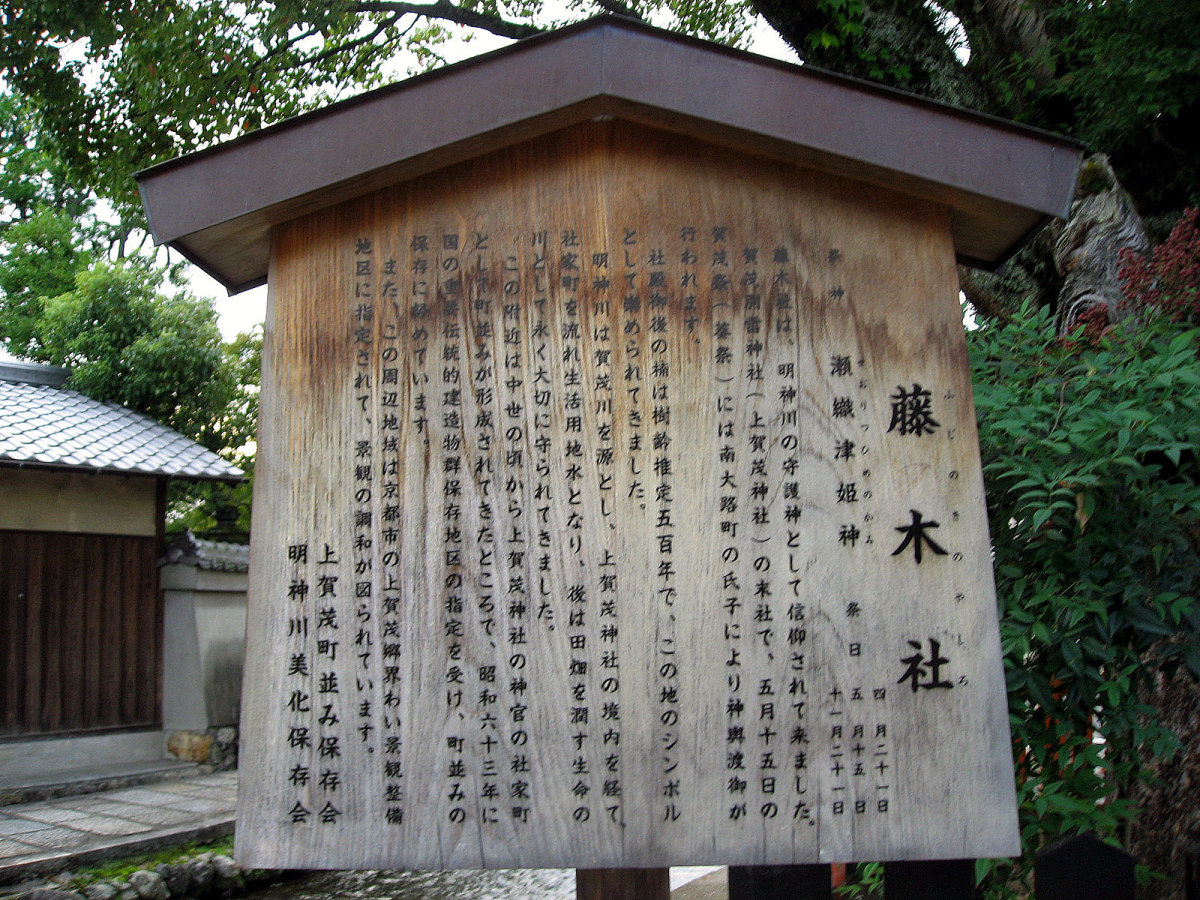 藤木社
ふじのきのやしろ
祭神　瀬織津姫神　祭日　四月二十一日
せおりつひめのかみ
五月十五日
十一月二十一日
藤木社は、明神川の守護神として信仰されて来ました。
賀茂別雷神社（上賀茂神社）の末社で、五月十五日の
賀茂祭（葵祭）には南大路町の氏子により神輿渡御が
行われます。
社殿御後の楠は樹齢推定五百年で、この地のシンボル
として崇められてきました。
明神川は賀茂川を源とし、上賀茂神社の境内を経て、
社家町を流れ生活用地水となり、後は田畑を潤す生命の
川として永く大切に守られてきました。
この附近は中世の頃から上賀茂神社の神官の社家町
として町並みが形成されてきたところで、昭和六十三年に
国の重要伝統的建造物群保存地区の指定を受け、町並みの
保存に努めています。
また、この周辺地域は京都市の上賀茂郷界わい景観整備
地区に指定されて、景観の調和が図られています。
上賀茂町並み保存会
明神川美化保存会